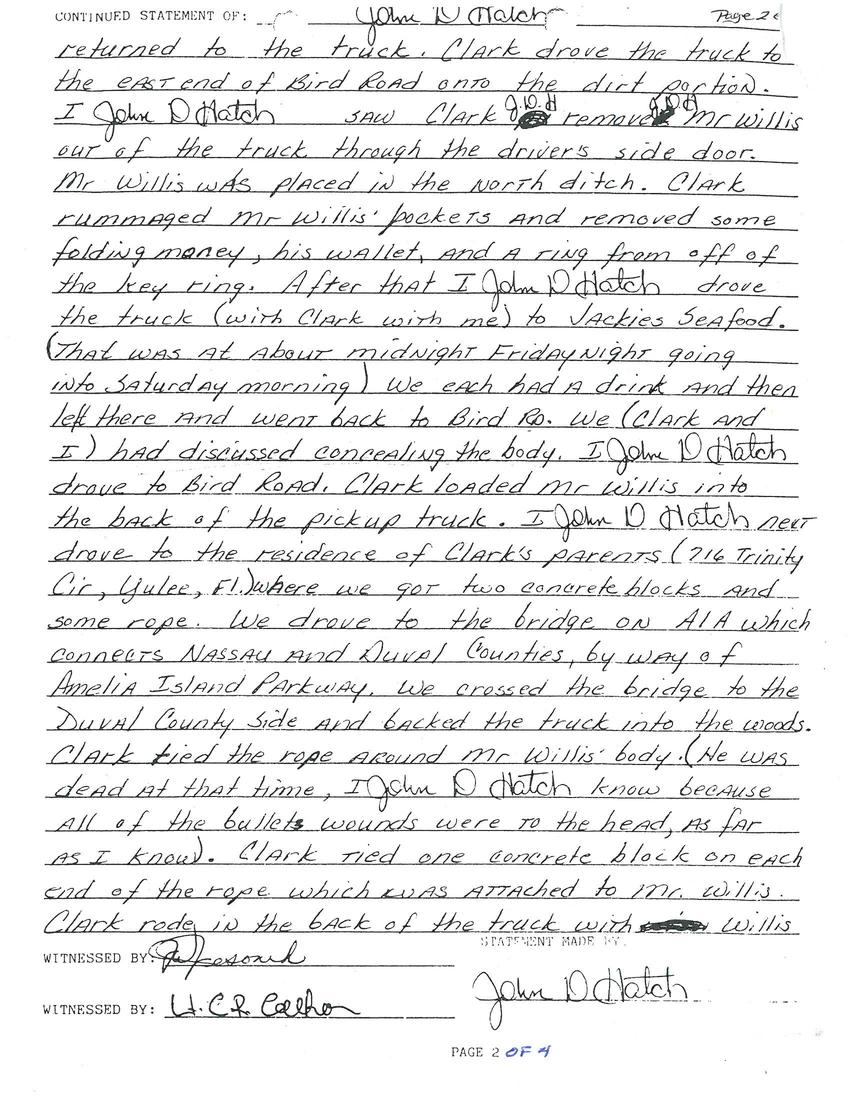 CONTINUED STATEMENT OF: John D Hatch Page 2
returned to the truck. Clark drove the truck to
the east end of Bird Road onto the dirt portion.
I John D Hatch saw Clark J.D.H remove J.D.H Mr Willis
out of the truck through the driver's side door.
Mr Willis was placed in the North ditch. Clark
rummaged Mr Willis' pockets and removed some
folding money, his wallet, and a ring from off of
the key ring. After that I John D Hatch drove
the truck (with Clark with me) to Jackies Seafood.
(That was at about midnight Friday night going
into Saturday morning) We each had a drink and then
left there and went back to Bird Rd. We (Clark and
I) had discussed concealing the body. I John D Hatch
drove to Bird Road. Clark loaded Mr Willis into
the back of the pickup truck. I John D Hatch next
drove to the residence of Clark's parents (716 Trinity
Cir, Yulee, Fl.) where we got two concrete blocks and
some rope. We drove to the bridge on A1A which
connects Nassau and Duval Counties, by way of
Amelia Island Parkway. We crossed the bridge to the
Duval County side and backed the truck into the woods.
Clark tied the rope around Mr Willis' body. (He was
dead at that time, I John D Hatch know because
all of the bullets wounds were to the head, as far
as I know). Clark tied one concrete block on each
end of the rope which was attached to Mr. Willis.
Clark rode in the back of the truck with Willis
STATEMENT MADE BY:
WITNESSED BY:
John D Hatch
WITNESSED BY: H. C. R. Calhoun
PAGE 2 OF 4